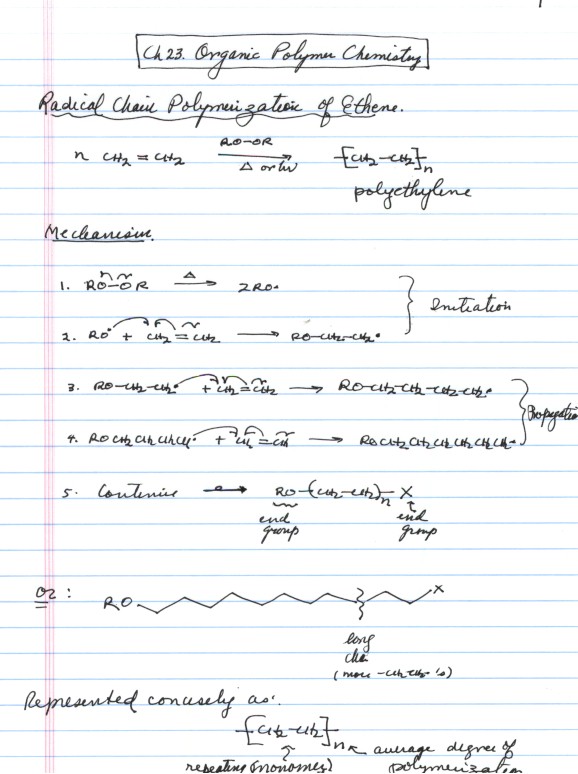 Ch 23. Organic Polymer Chemistry
Radical Chain Polymerization of Ethene.
n CH2 = CH2 RO-OR Δ or hν -[CH2-CH2]-n
polyethylene
Mechanism.
1. RO-OR Δ → 2RO•
Initiation
2. RO• + CH2=CH2 → RO-CH2-CH2•
3. RO-CH2-CH2• + CH2=CH2 → RO-CH2-CH2-CH2-CH2•
Propagation
4. ROCH2CH2CH2CH2• + CH2=CH2 → ROCH2CH2CH2CH2CH2CH2•
5. Continue → RO-(CH2-CH2)-n X
end group
end group
OR :
RO X
long
(more -CH2-CH2- 's)
Represented concisely as:
-[CH2-CH2]-n
average degree of polymerization
repeating (monomer)